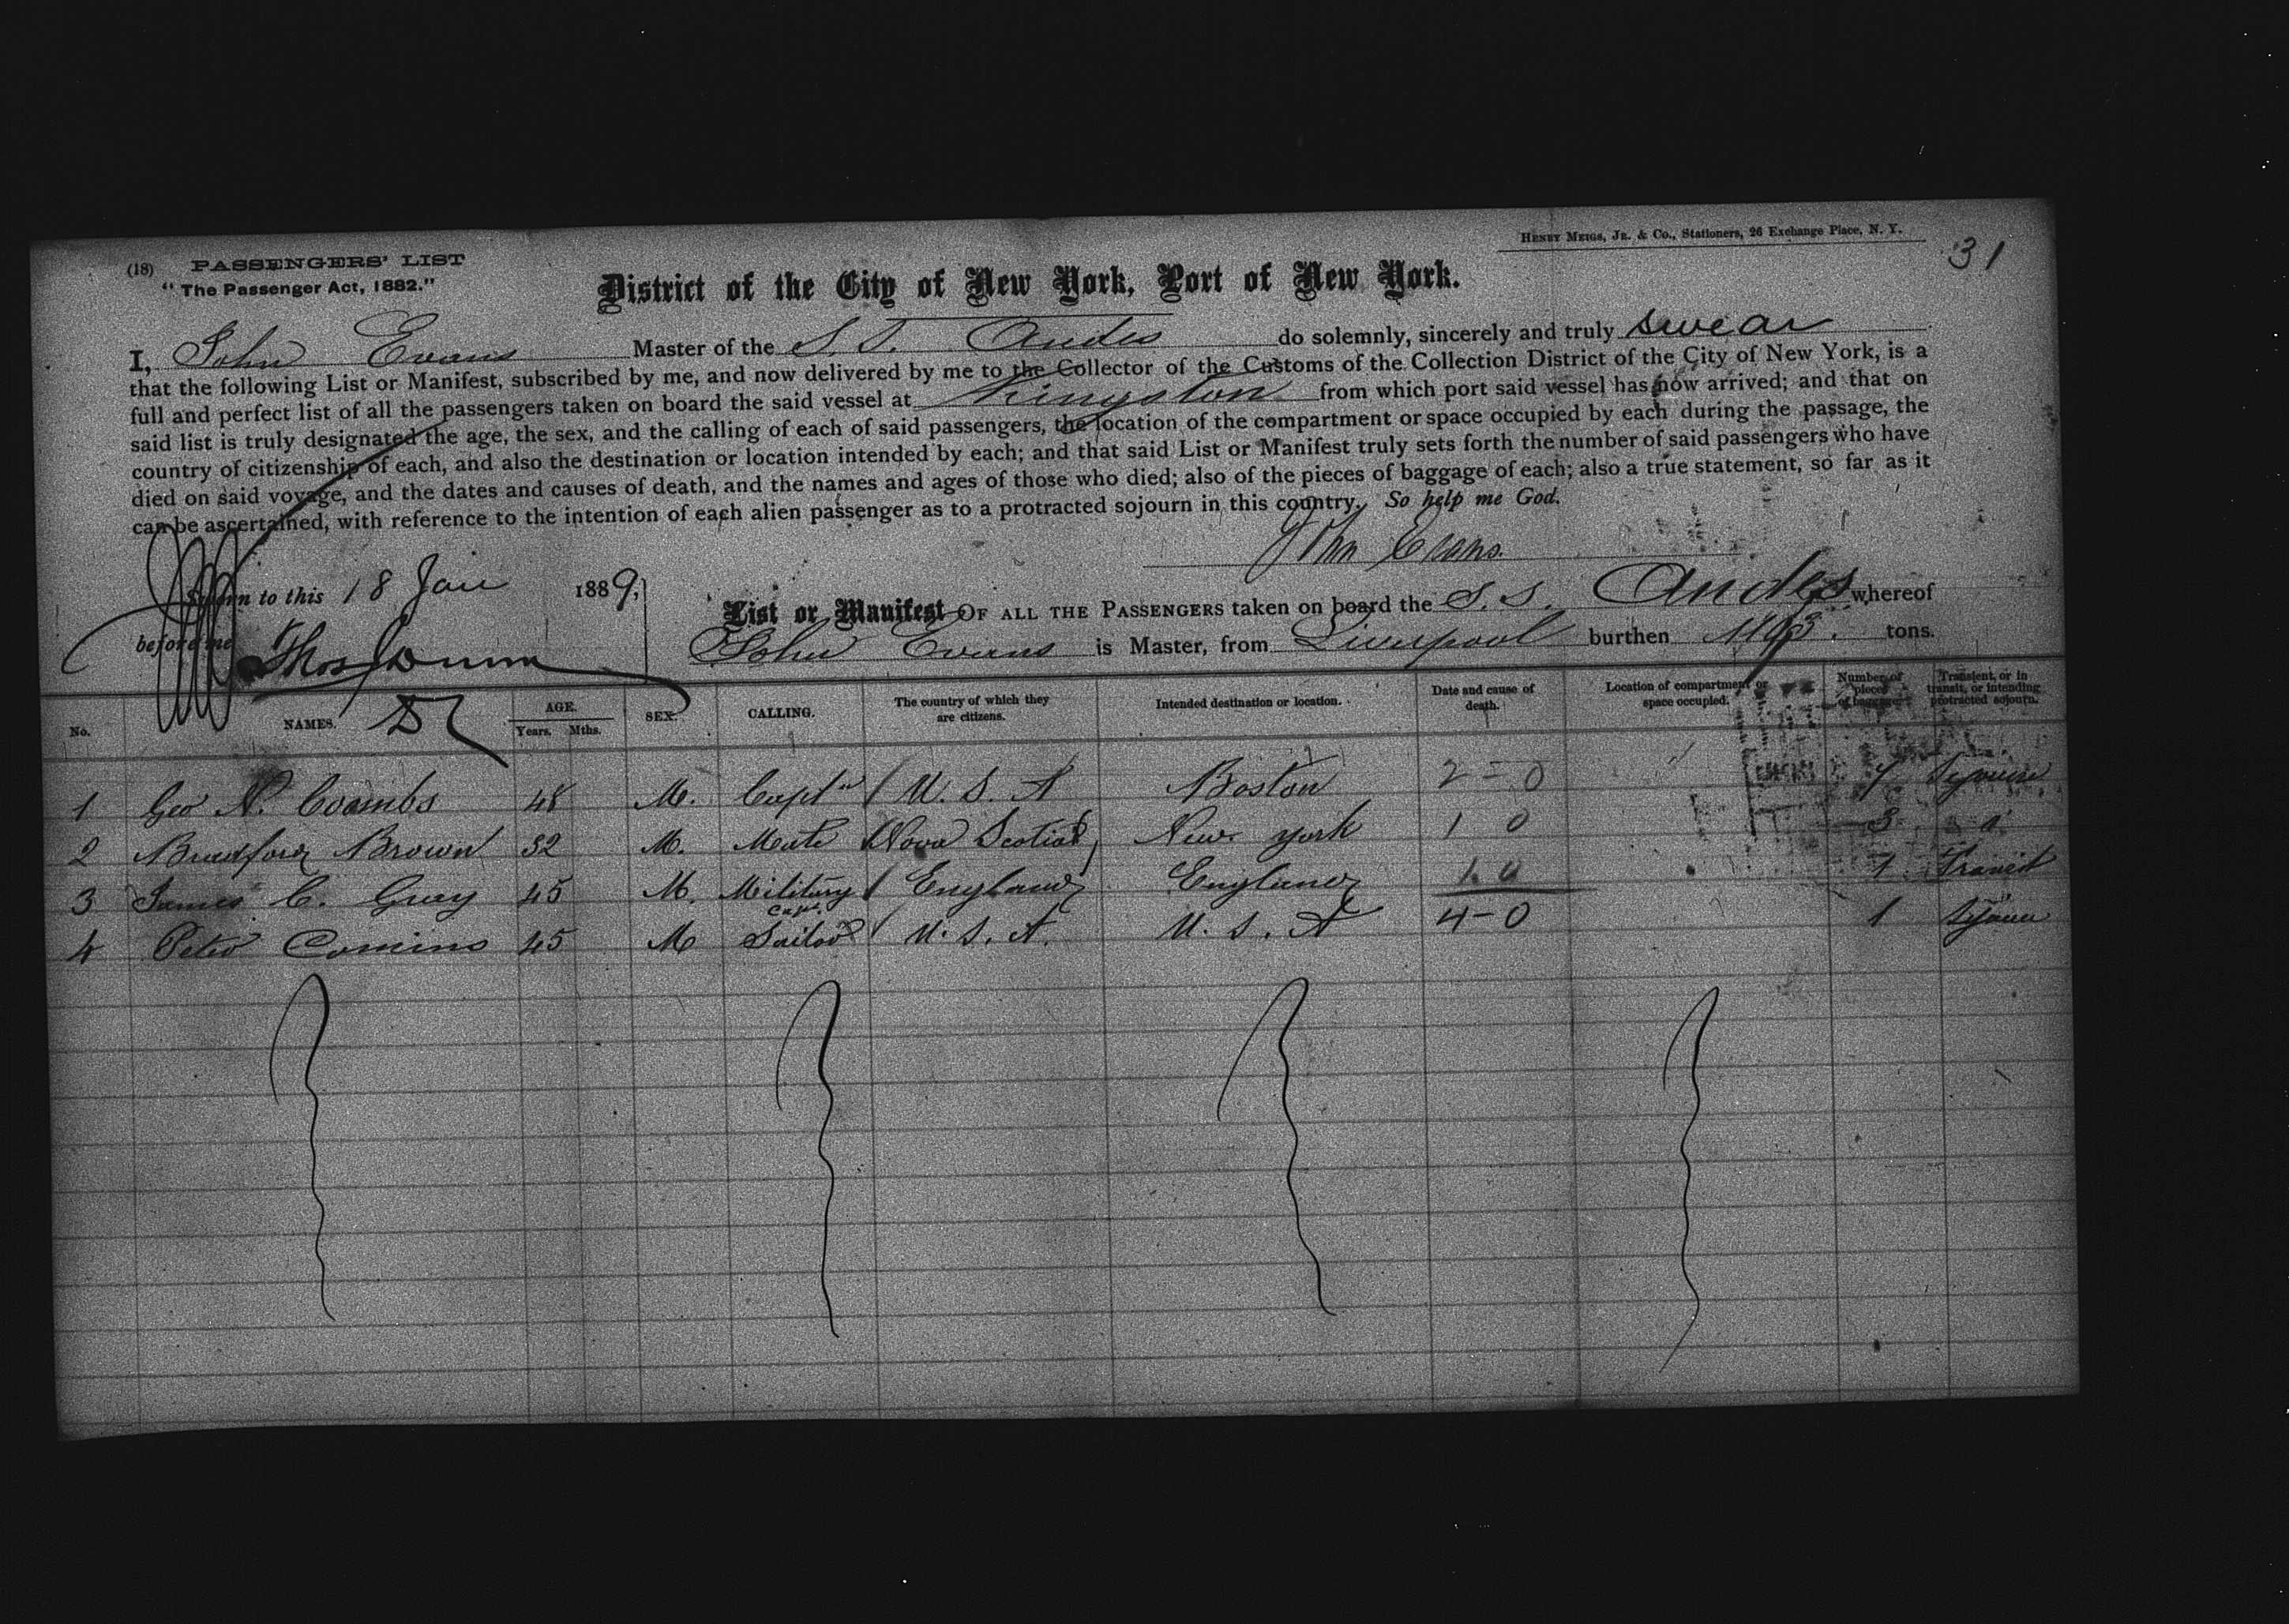 HENRY MEIGS, JR. & CO., Stationers, 26 Exchange Place, N. Y.
31
(18) PASSENGERS' LIST
"The Passenger Act, 1882."
District of the City of New York, Port of New York.
I, John Evans Master of the S. S. Andes do solemnly, sincerely and truly swear
that the following List or Manifest, subscribed by me, and now delivered by me to the Collector of the Customs of the Collection District of the City of New York, is a
full and perfect list of all the passengers taken on board the said vessel at Kingston from which port said vessel has now arrived; and that on
said list is truly designated the age, the sex, and the calling of each of said passengers, the location of the compartment or space occupied by each during the passage, the
country of citizenship of each, and also the destination or location intended by each; and that said List or Manifest truly sets forth the number of said passengers who have
died on said voyage, and the dates and causes of death, and the names and ages of those who died; also of the pieces of baggage of each; also a true statement, so far as it
can be ascertained, with reference to the intention of each alien passenger as to a protracted sojourn in this country. So help me God.
John Evans.
Sworn to this 18 Jan 1889,
before me Thos Dunn
List or Manifest OF ALL THE PASSENGERS taken on board the S. S. Andes whereof
John Evans is Master, from Liverpool burthen tons.
No. NAMES. AGE. Years. Mths. SEX. CALLING. The country of which they are citizens. Intended destination or location. Date and cause of death. Location of compartment or space occupied. Number of pieces of baggage. Transient, or in transit, or intending protracted sojourn.
1 Geo N. Coombs 48 M. Captn U. S. A Boston 2 - 0
2 Bradford Brown 32 M. Mate Nova Scotia New York 1 0 3
3 James C. Gray 45 M. Military Capt. England England 1 0 Transit
4 Peter Comins 45 M Sailor U. S. A. U. S. A 4 - 0 1